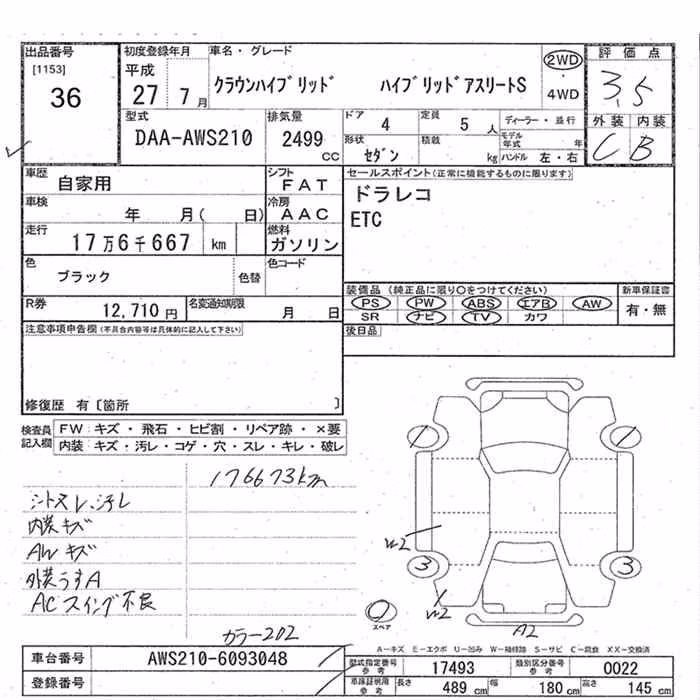 出品番号
[1153]
36
初度登録年月
平成
27 7月
車名・グレード
クラウンハイブリッド ハイブリッドアスリートS
2WD
・
4WD
評価点
3.5
外装 内装
C B
型式
DAA-AWS210
排気量
2499
CC
ドア 4
定員 5 人
ディーラー・並行
形状
セダン
積載 kg
モデル年式 年
ハンドル 左・右
車歴
自家用
シフト
FAT
セールスポイント(正常に機能するものに限ります)
ドラレコ
ETC
車検
年 月( 日)
冷房
AAC
走行
17万6千667 km
燃料
ガソリン
色
ブラック
色替
色コード
装備品 (純正品に限り○をつけてください)
PS PW ABS エアB AW
SR ナビ TV カワ
新車保証書
有・無
R券
12,710円
名変通知期限
月 日
後日品
注意事項申告欄(不具合内容等は具体的に記入して下さい)
修復歴 有〔箇所 〕
検査員記入欄
FW:キズ・飛石・ヒビ割・リペア跡・×要
内装:キズ・汚レ・コゲ・穴・スレ・キレ・破レ
176673km
シートスレ、汚レ
内装キズ
AWキズ
外装うすA
ACスイング不良
カラー202
1
1
W2
3
3
W2
スペア
A2
A-キズ E-エクボ U-凹み W-補修跡 S-サビ C-腐食 XX-交換済
車台番号
AWS210-6093048
登録番号
型式指定番号
参考
17493
類別区分番号
参考
0022
車庫証明用
参考
長さ 489 cm
幅 180 cm
高さ 145 cm